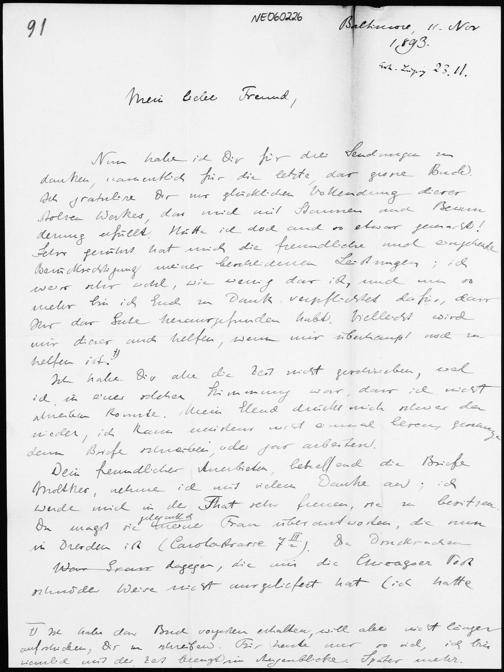 91
NE060226
Baltimore, 11. Nov
1893.
23.11.
Mein lieber Freund,
Nun habe ich Dir für drei Sendungen zu
danken, namentlich für die letzte, das grosse Buch.
Ich gratulire Dir zur glücklichen Vollendung dieses
stolzen Werkes, das mich mit Staunen und Bewun
derung erfüllt. Hätte ich doch auch so etwas gemacht!
Sehr gerührt hat mich die freundliche und eingehende
Berücksichtigung meiner bescheidenen Leistungen; ich
weiss sehr wohl, wie wenig das ist, und um so
mehr bin ich Euch zu Dank verpflichtet dafür, dass
Ihr das Gute herausgefunden habt. Vielleicht wird
mir dieses auch helfen, wenn mir überhaupt noch zu
helfen ist. 1)
Ich habe Dir alle die Zeit nicht geschrieben, weil
ich in einer solchen Stimmung war, dass ich nicht
schreiben konnte. Mein Elend drückt mich schwer dar
nieder, ich kann meistens nicht einmal lesen, geschweige
denn Briefe schreiben, oder gar arbeiten.
Dein freundliches Anerbieten, betreffend die Briefe
Moltkes, nehme ich mit vielem Danke an; ich
werde mich in der That sehr freuen, sie zu besitzen.
Du magst sie meiner Frau überantworten, die nun
in Dresden ist (Carolastrasse 7 III). Die Drucksachen
dagegen, die mir die Chicagoer Post
schnöder Weise nicht ausgeliefert hat (ich hatte
1) Ich habe das Buch erhalten, will aber nicht länger
aufschieben, Dir zu schreiben. Für heute nur so viel, ich bin
mit der Zeit beengt im Augenblicke. Später mehr.